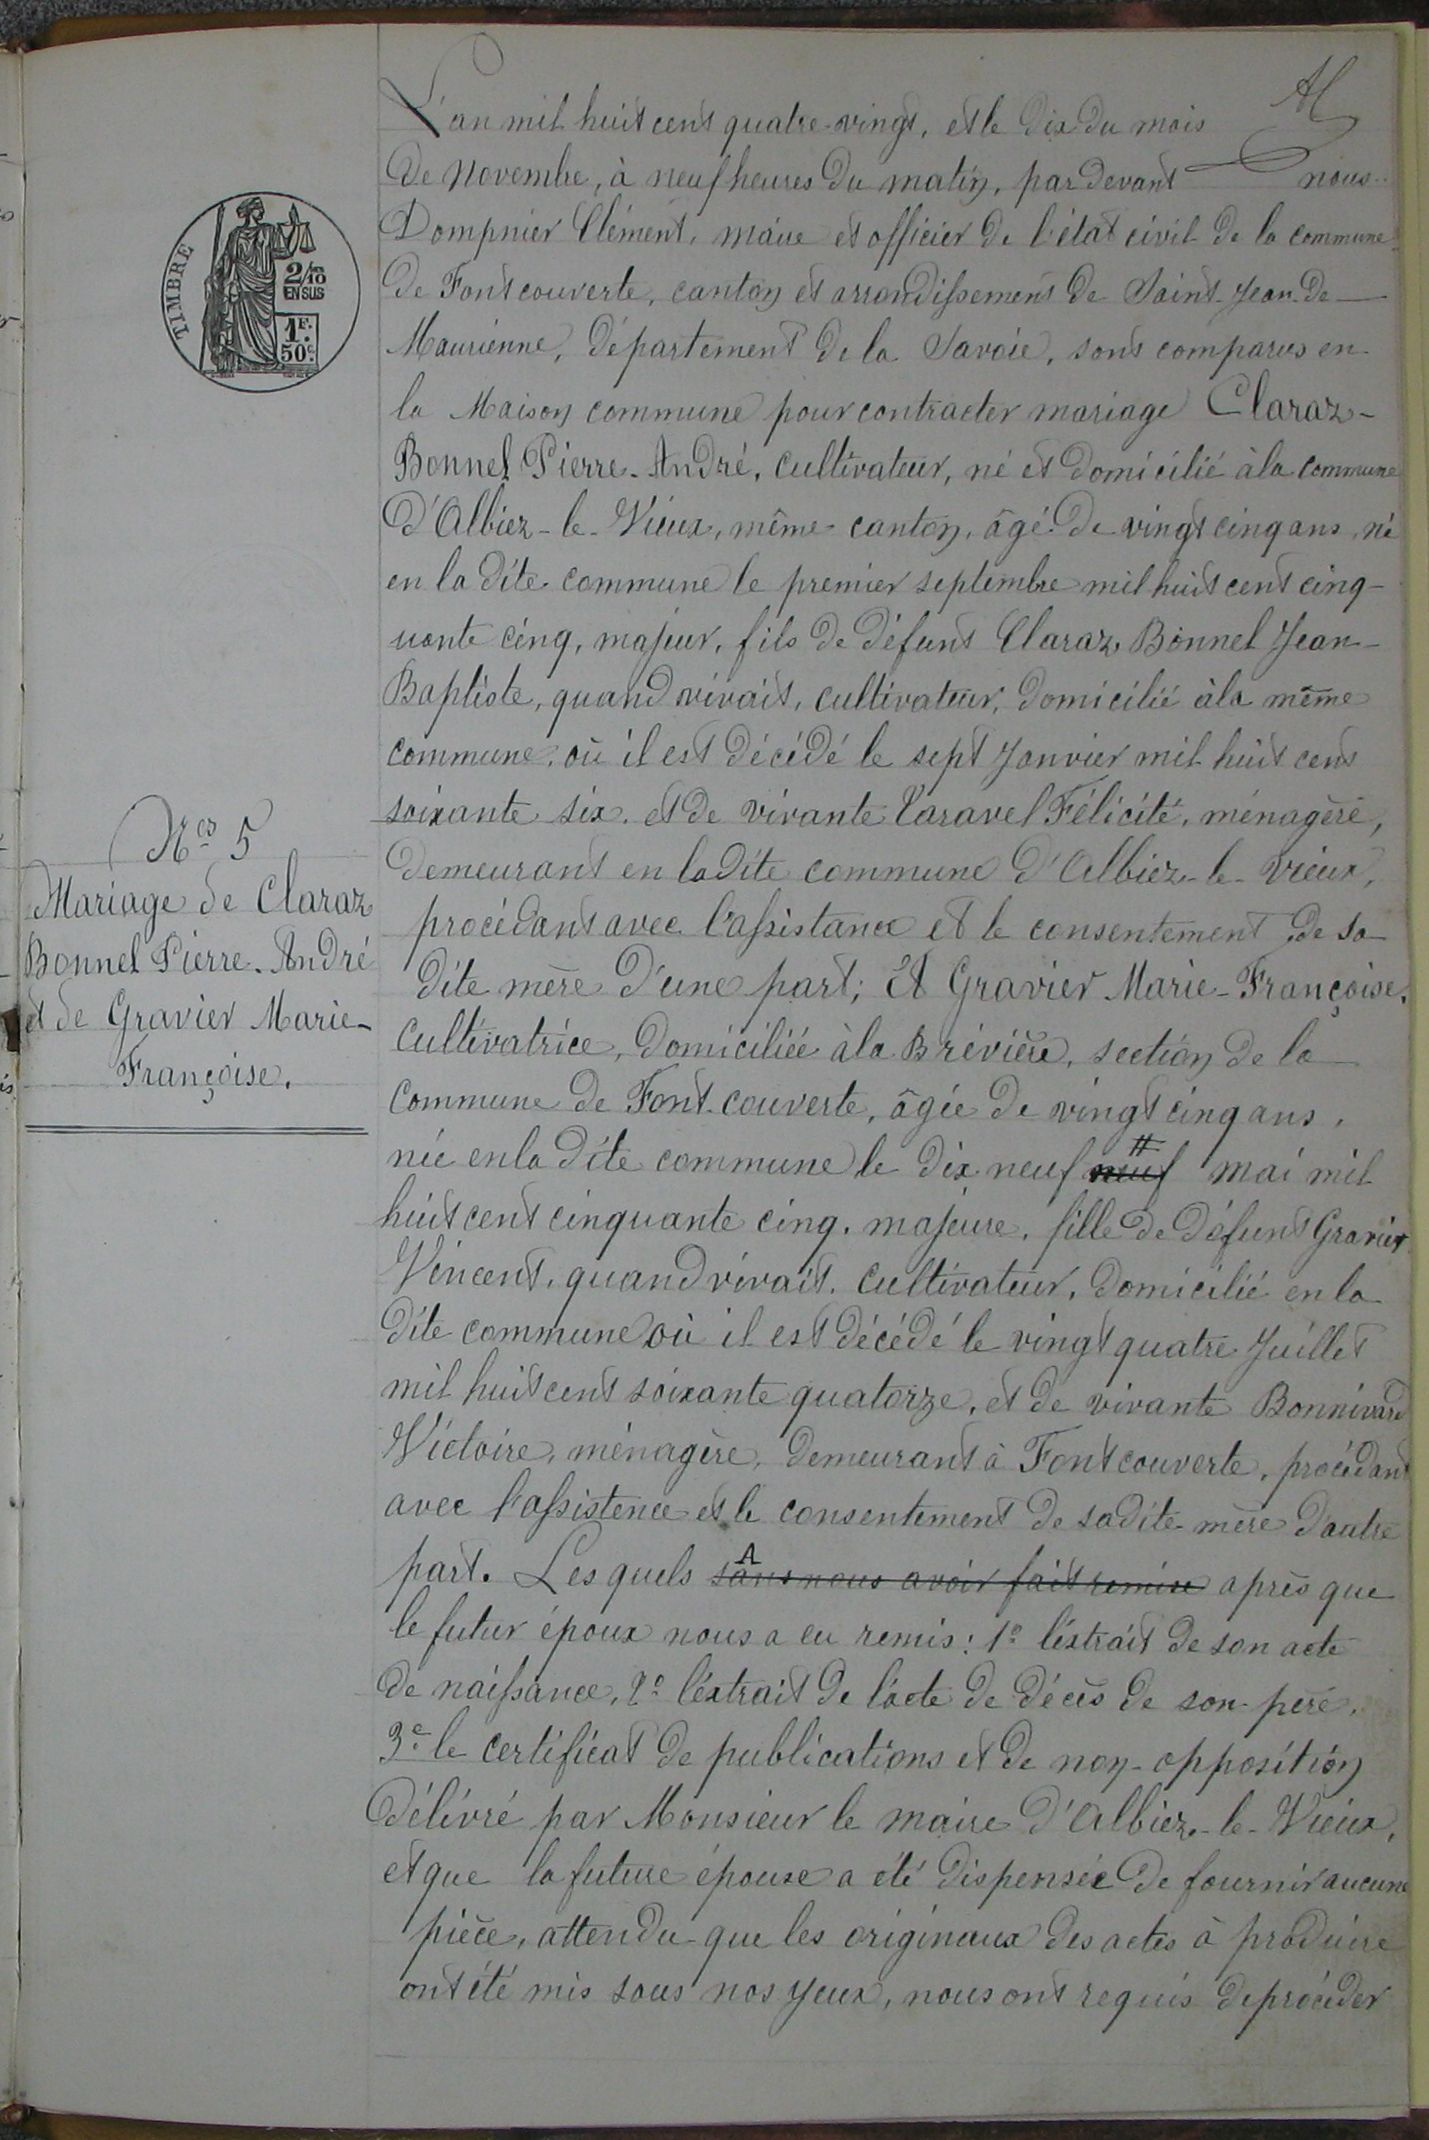 L'an mil huit cent quatre-vingt, et le dix du mois
de Novembre, à neuf heures du matin, par devant nous
Dompnier Clément, maire et officier de l'état civil de la commune
de Fontcouverte, canton et arrondissement de Saint-Jean-de
Maurienne, département de la Savoie, sont comparus en
la Maison commune pour contracter mariage Claraz-
Bonnel Pierre-André, cultivateur, né et domicilié à la commune
d'Albiez-le-Vieux, même canton, âgé de vingt cinq ans, né
en la dite commune le premier septembre mil huit cent cinq-
uante cinq, majeur, fils de défunt Claraz Bonnel Jean-
Baptiste, quand vivait, cultivateur, domicilié à la même
commune, où il est décédé le sept Janvier mil huit cent
soixante six. et de vivante Caravel Félicité, ménagère,
demeurant en la dite commune d'Albiez-le-Vieux,
procédant avec l'assistance et le consentement de sa
dite mère d'une part; Et Gravier Marie-Françoise,
cultivatrice, domiciliée à la Brévière, section de la
commune de Font-couverte, âgée de vingt cinq ans,
née en la dite commune le dix neuf # neuf mai mil
huit cent cinquante cinq, majeure, fille de défunt Gravier
Vincent, quand vivait, cultivateur, domicilié en la
dite commune où il est décédé le vingt quatre Juillet
mil huit cent soixante quatorze, et de vivante Bonnivard
Victoire, ménagère, demeurant à Fontcouverte, procédant
avec l'assistence et le consentement de sadite mère d'autre
part. Lesquels A sans nous avoir fait remise après que
le futur époux nous a eu remis: 1° l'extrait de son acte
de naissance, 2° l'extrait de l'acte de décès de son père,
3e le certificat de publications et de non-opposition
délivré par Monsieur le maire d'Albiez-le-Vieux,
et que la future épouse a été dispensée de fournir aucune
pièce, attendu que les originaux des actes à produire
ont été mis sous nos yeux, nous ont requis de procéder
TIMBRE
2/10
EN SUS
1F.
50c.
Nos 5
Mariage de Claraz
Bonnel Pierre-André
et de Gravier Marie-
Françoise.